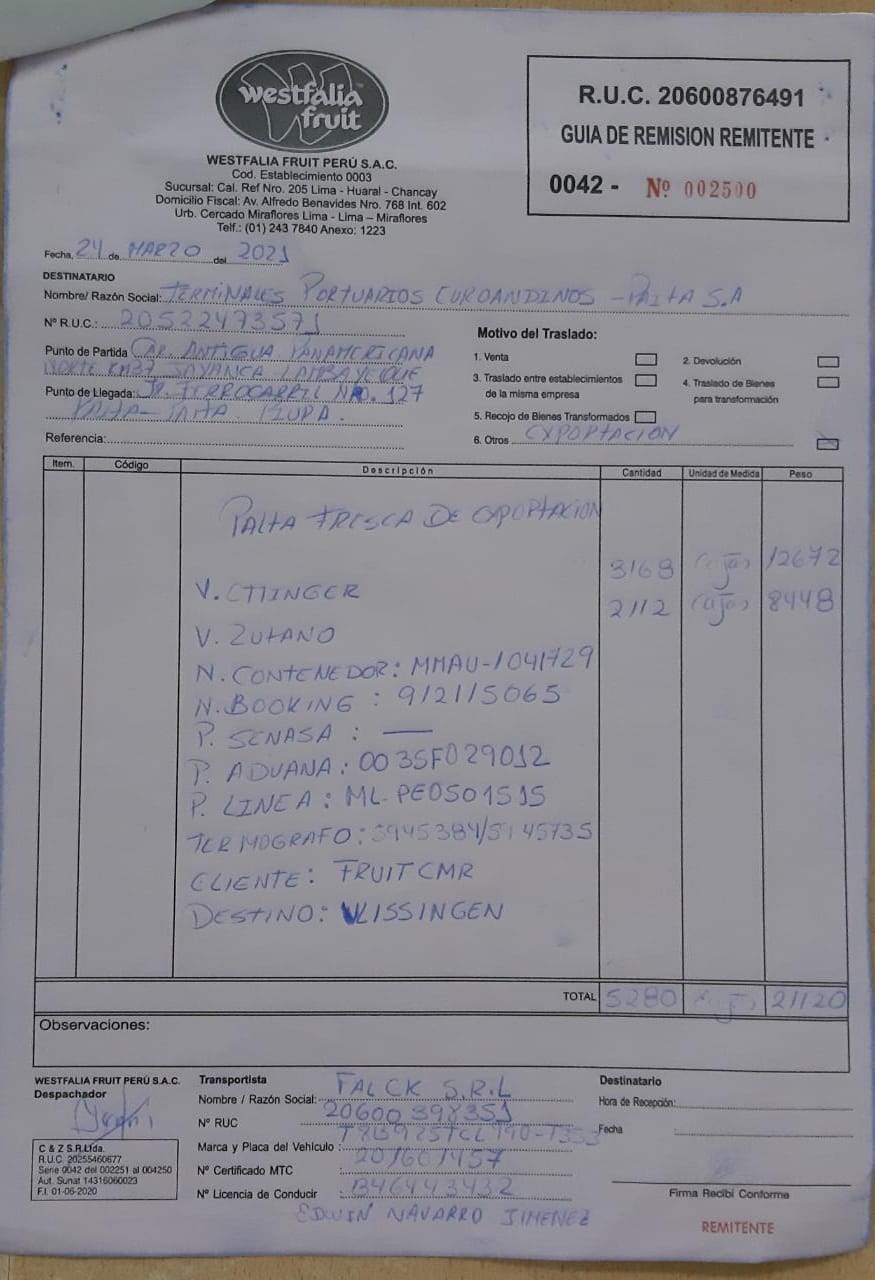 westfalia
fruit
WESTFALIA FRUIT PERÚ S.A.C.
Cod. Establecimiento 0003
Sucursal: Cal. Ref Nro. 205 Lima - Huaral - Chancay
Domicilio Fiscal: Av. Alfredo Benavides Nro. 768 Int. 602
Urb. Cercado Miraflores Lima - Lima – Miraflores
Telf.: (01) 243 7840 Anexo: 1223
R.U.C. 20600876491
GUIA DE REMISION REMITENTE
0042 - Nº 002500
Fecha, 24 de MARZO del 2021
DESTINATARIO
Nombre/ Razón Social: TERMINALES PORTUARIOS EUROANDINOS - PAITA S.A
Nº R.U.C.: 20522473571
Punto de Partida CAR. ANTIGUA PANAMERICANA
NORTE KM37 JAYANCA LAMBAYEQUE
Punto de Llegada: JR. FERROCARRIL NRO. 127
PAITA - PAITA PIURA.
Referencia:
Motivo del Traslado:
1. Venta
2. Devolución
3. Traslado entre establecimientos
de la misma empresa
4. Traslado de Bienes
para transformación
5. Recojo de Bienes Transformados
6. Otros EXPORTACION
Item. Código Descripción Cantidad Unidad de Medida Peso
PALTA FRESCA DE EXPORTACION
V. ETTINGER 3168 Cajas 12672
V. ZUTANO 2112 Cajas 8448
N. CONTENEDOR: MMAU-1041729
N. BOOKING : 912115065
P. SENASA : —
P. ADUANA: 0035F029012
P. LINEA: ML-PE0501515
TERMOGRAFO:
CLIENTE: FRUITCMR
DESTINO: VLISSINGEN
TOTAL 5280 Cajas 21120
Observaciones:
WESTFALIA FRUIT PERÚ S.A.C.
Despachador
C & Z S.R.Ltda.
R.U.C. 20255460677
Serie 0042 del 002251 al 004250
Aut. Sunat 14316060023
F.I. 01-06-2020
Transportista
Nombre / Razón Social: FALCK S.R.L
Nº RUC 20600398351
Marca y Placa del Vehículo :
Nº Certificado MTC :
Nº Licencia de Conducir : B46443432
EDWIN NAVARRO JIMENEZ
Destinatario
Hora de Recepción:
Fecha :
Firma Recibi Conforme
REMITENTE